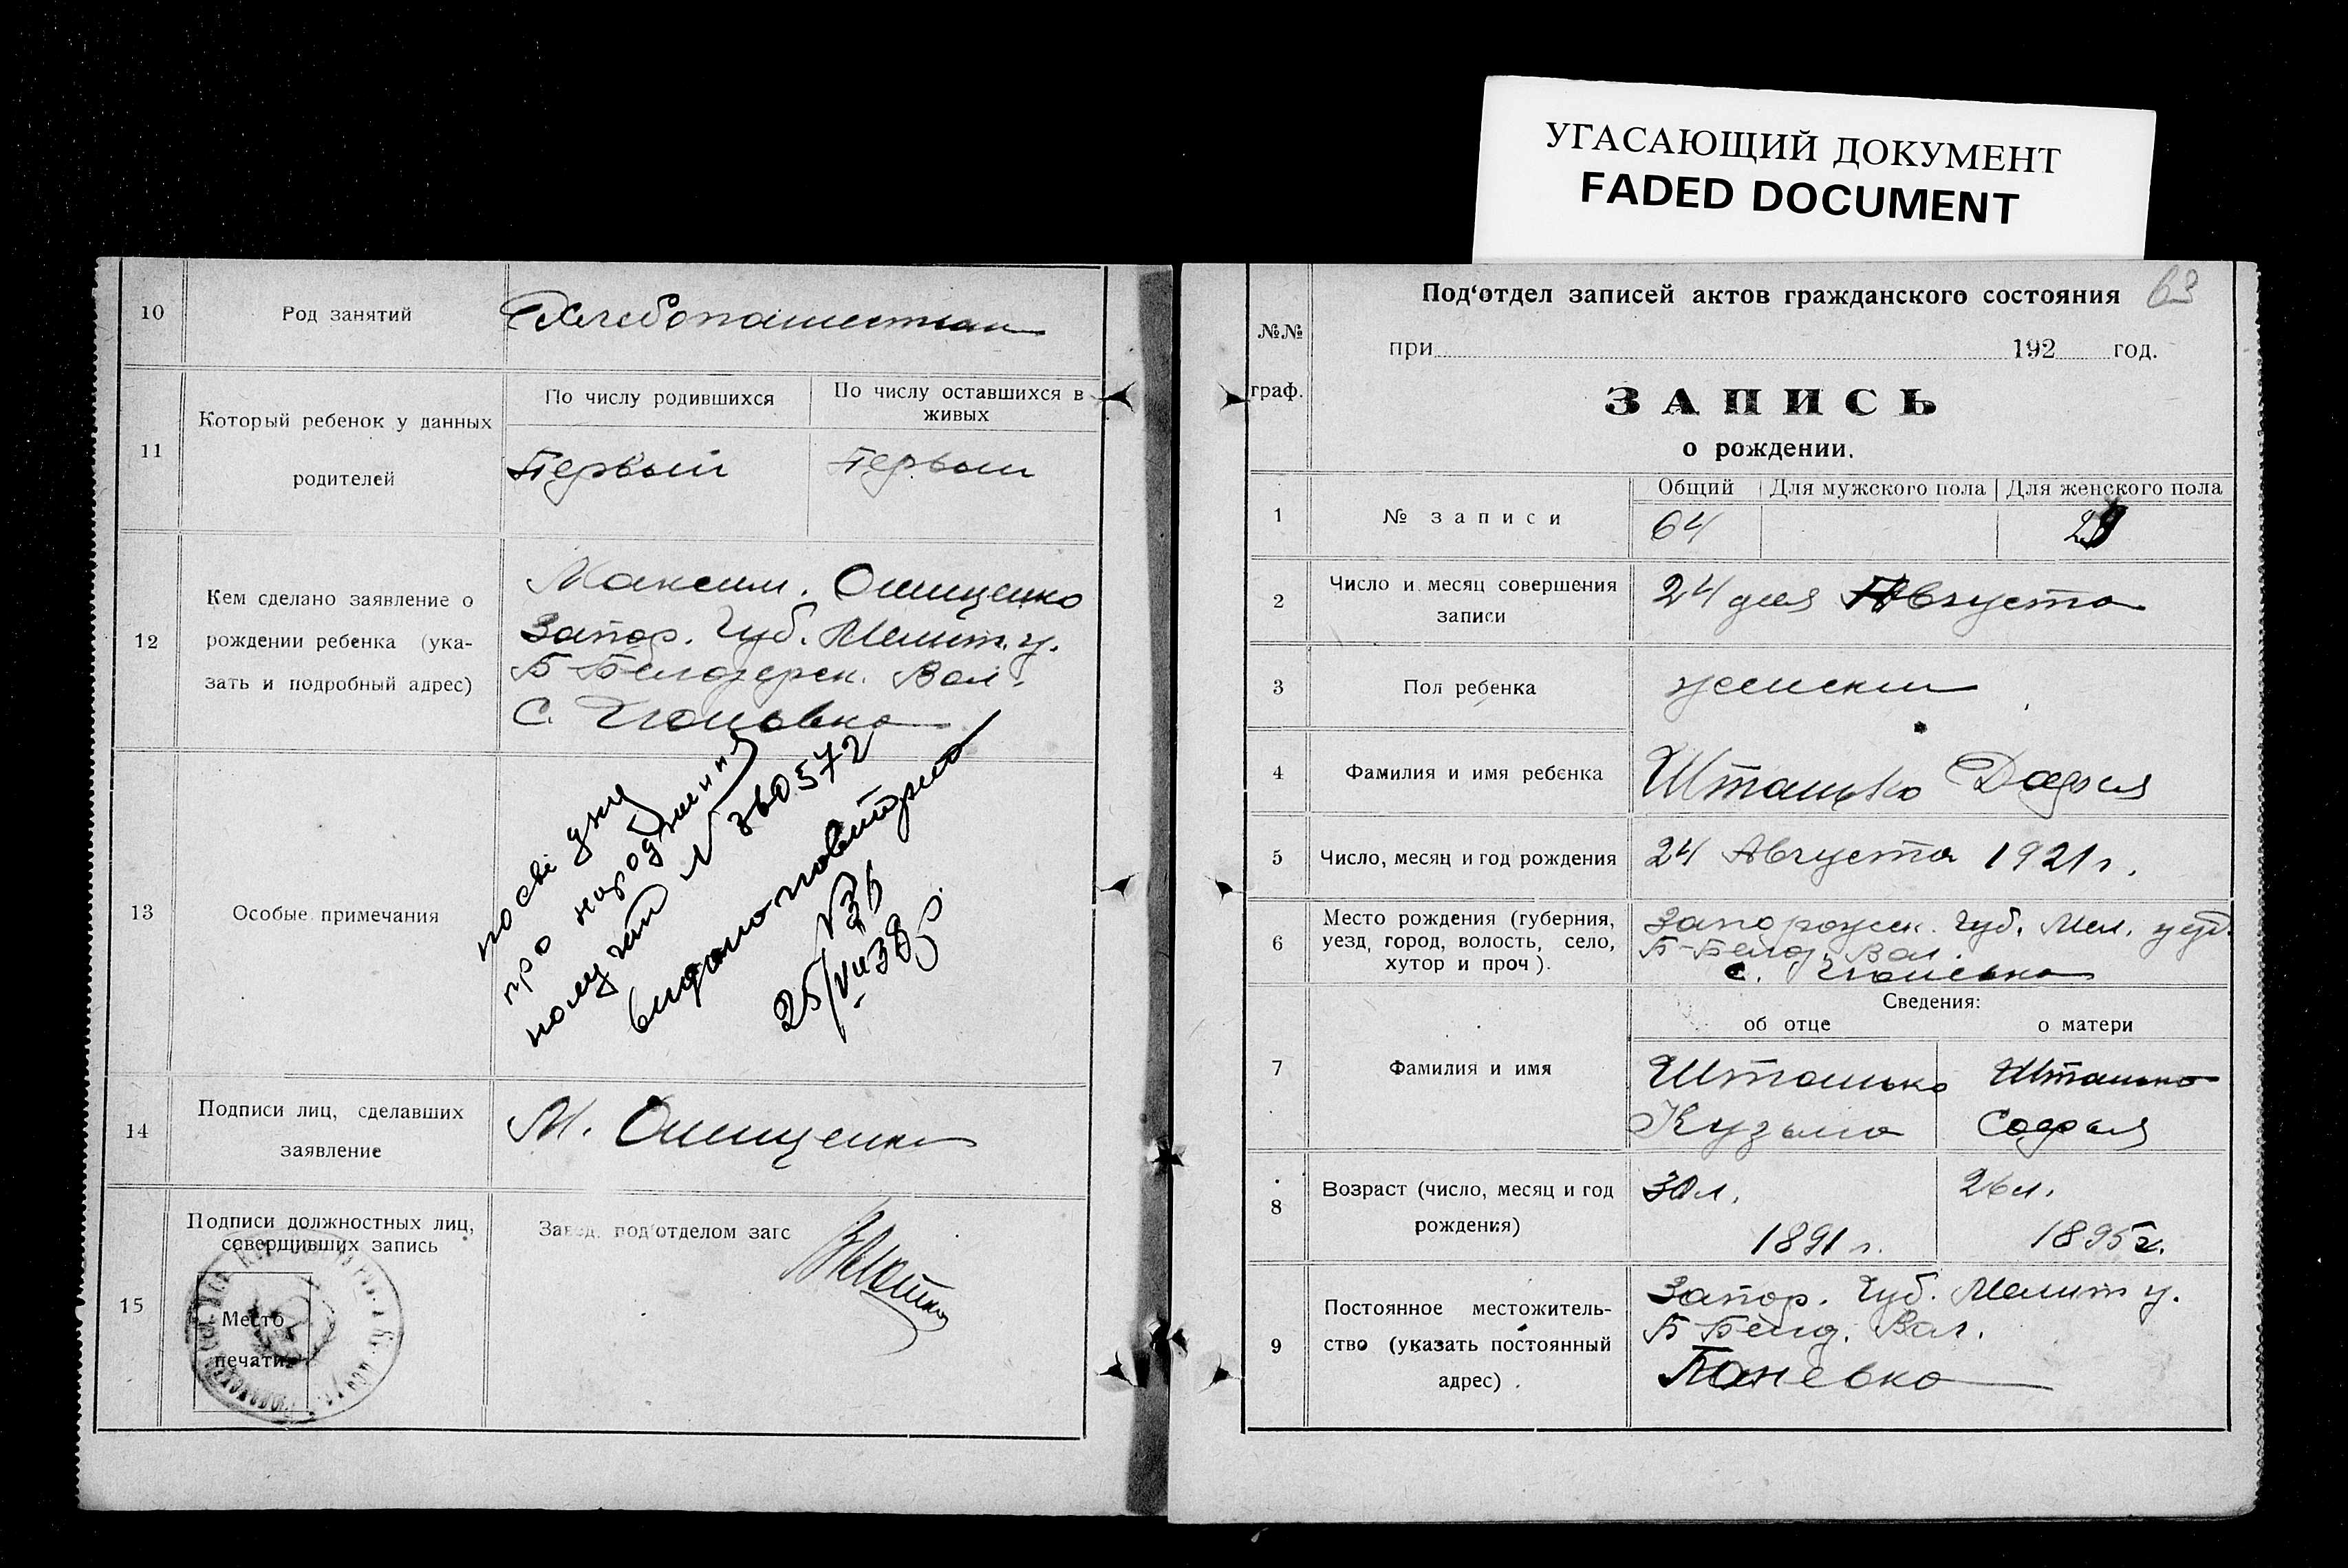 УГАСАЮЩИЙ ДОКУМЕНТ
FADED DOCUMENT
10
Род занятий
Хлебопашество
11
Который ребенок у данных
родителей
По числу родившихся
По числу оставшихся в
живых
Первый
Первый
12
Кем сделано заявление о
рождении ребенка (ука-
зать и подробный адрес)
Максим. Онищенко
Запор. Губ. Мелит. у.
Б-Белозерск. Вол.
С.
13
Особые примечания
посвідку
про народження
получат № 360572
видано повторно
25/VII 38 р.
14
Подписи лиц, сделавших
заявление
М. Онищенко
15
Подписи должностных лиц,
соверщивших запись
Место
печати
Завед. под'отделом загс
63
№№
граф.
Под'отдел записей актов гражданского состояния
при 192 год.
ЗАПИСЬ
о рождении.
1
№ записи
Общий
Для мужского пола
Для женского пола
64
2
Число и месяц совершения
записи
24 дня Августа
3
Пол ребенка
женский
4
Фамилия и имя ребенка
Штанько Дарья
5
Число, месяц и год рождения
24 Августа 1921 г.
6
Место рождения (губерния,
уезд, город, волость, село,
хутор и проч).
Запорожск. Губ. Мел. уезд.
Б-Белоз. Вол.
с.
Сведения:
об отце
о матери
7
Фамилия и имя
Штанько
Кузьма
Штанько
Софья
8
Возраст (число, месяц и год
рождения)
30 л.
1891 г.
26 л.
1895 г.
9
Постоянное местожитель-
ство (указать постоянный
адрес).
Запор. Губ. Мелит у.
Б-Белоз. Вол.